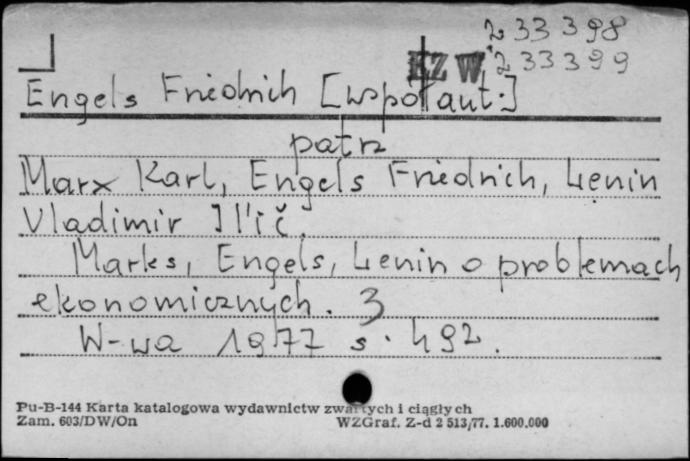 233398
EZ W 233399
Engels Friedrich [współaut.]
patrz
Marx Karl, Engels Friedrich, Lenin
Vladimir Il'ič.
Marks, Engels, Lenin o problemach
ekonomicznych. 3
W-wa 1977 s. 492.
Pu-B-144 Karta katalogowa wydawnictw zwartych i ciągłych
Zam. 603/DW/On WZGraf. Z-d 2 513/77. 1.600.000